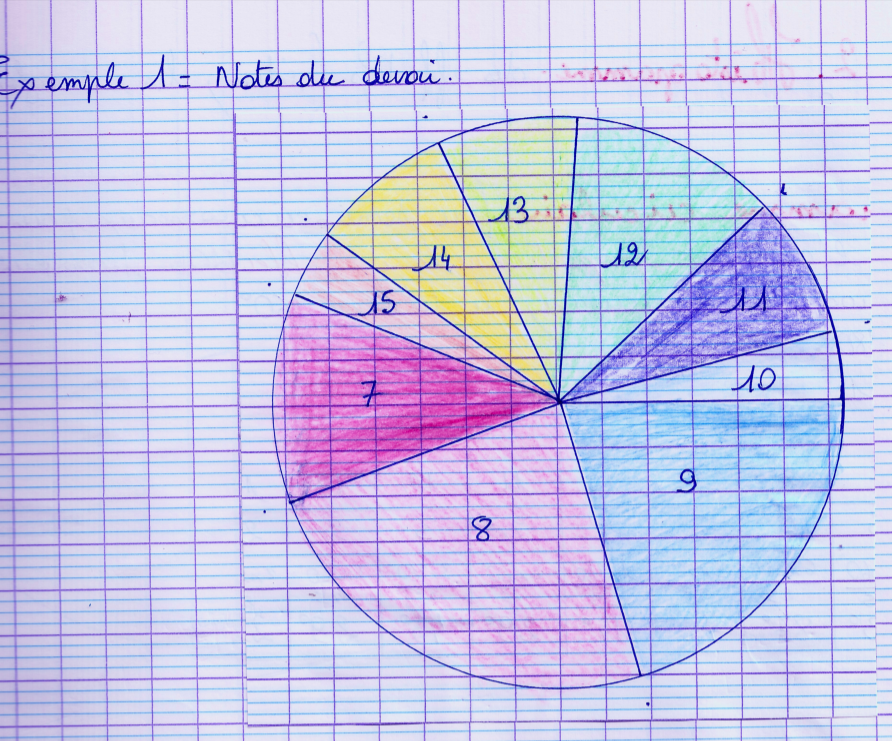 Exemple 1 = Notes du devoir.
13
12
14
11
15
10
7
9
8